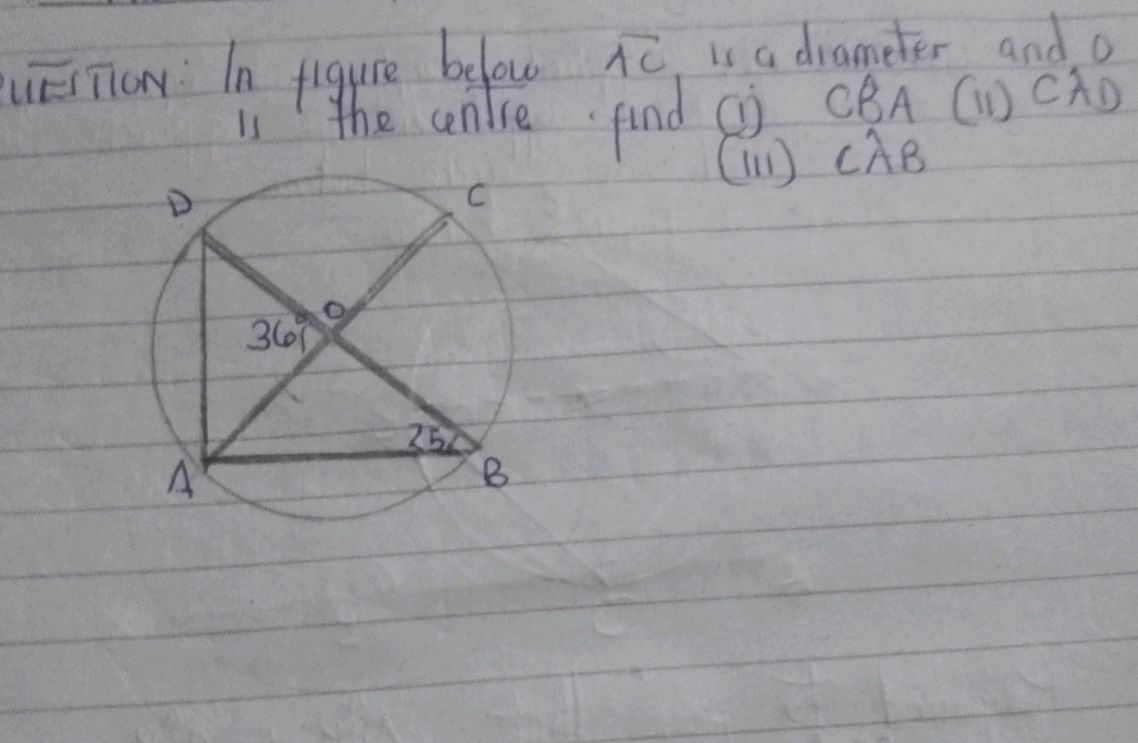 QUESTION: In figure below AC is a diameter and O
is the centre. find (i) CB̂A (ii) CÂD
(iii) CÂB
D
C
O
36°
25
A
B